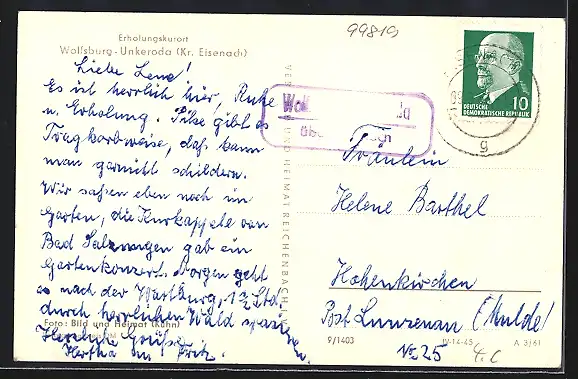 99819
Erholungskurort
Wolfsburg-Unkeroda (Kr. Eisenach)
Liebe Lene!
Es ist herrlich hier, Ruhe
u. Erholung. Pilze gibt es
Tragkorbweise, das kann
man garnicht schildern.
Wir saßen eben noch im
Garten, die Kurkapelle von
Bad Salzungen gab ein
Gartenkonzert. Morgen geht
es nach der Wartburg, 1 1/2 Std.
durch herrlichen Wald
Herzliche Grüße
Hertha und Fritz.
Foto: Bild und Heimat (Kühn)
UND HEIMAT REICHENBACH I. V.
DEUTSCHE
DEMOKRATISCHE REPUBLIK
10
g
über
Fräulein
Helene Barthel
Hohenkirchen
Post Lunzenau (Mulde)
Nr. 25
9/1403
IV-14-45
A 3/61